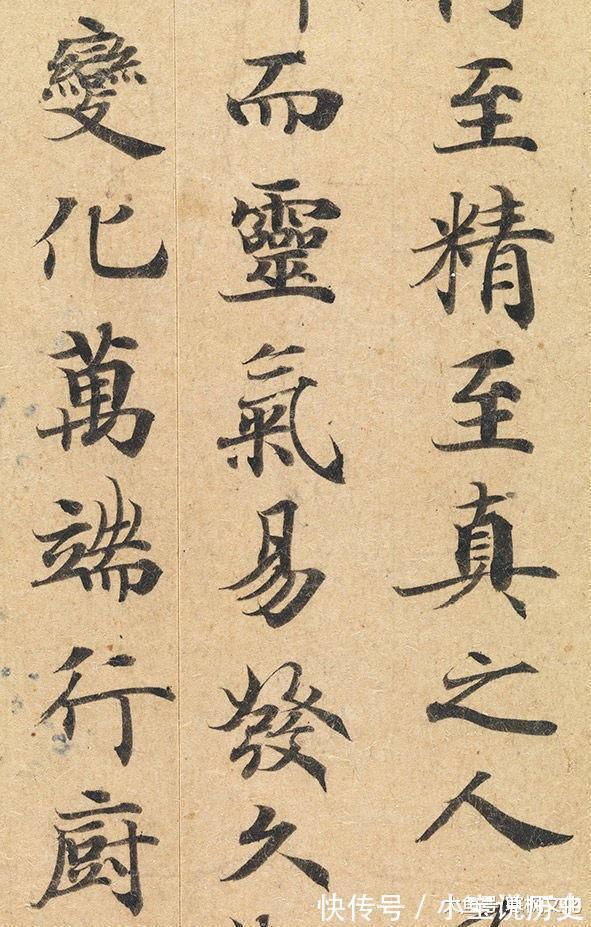 至精至真之人
而靈氣易發久
變化萬端行廚
快传号 / 小宝说历史